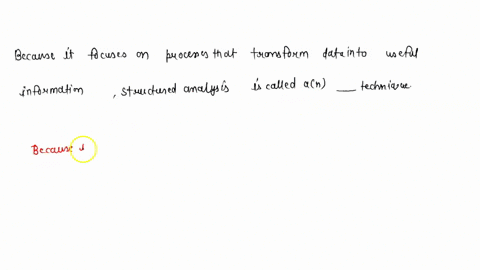 Because it focuses on processes that transform data into useful
information , structured analysis is called a(n) __ technique
Because i